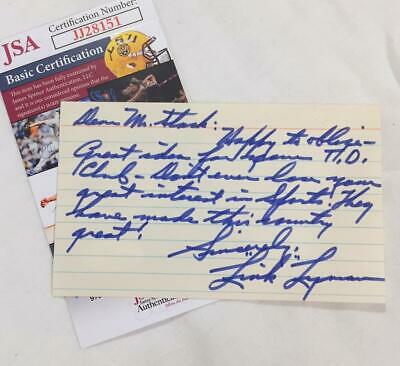 Certification Number:
JJ28151
JSA
Basic Certification
This item has been fully examined by
James Spence Authentication, LLC
and it is our considered opinion that the
Dear Mr. Stash:
Happy to oblige-
Great idea for your T.D.
Club. Don't ever lose your
great interest in Sports. They
have made this country
great!
Sincerely:
"Link" Lyman
JSA
Authentic